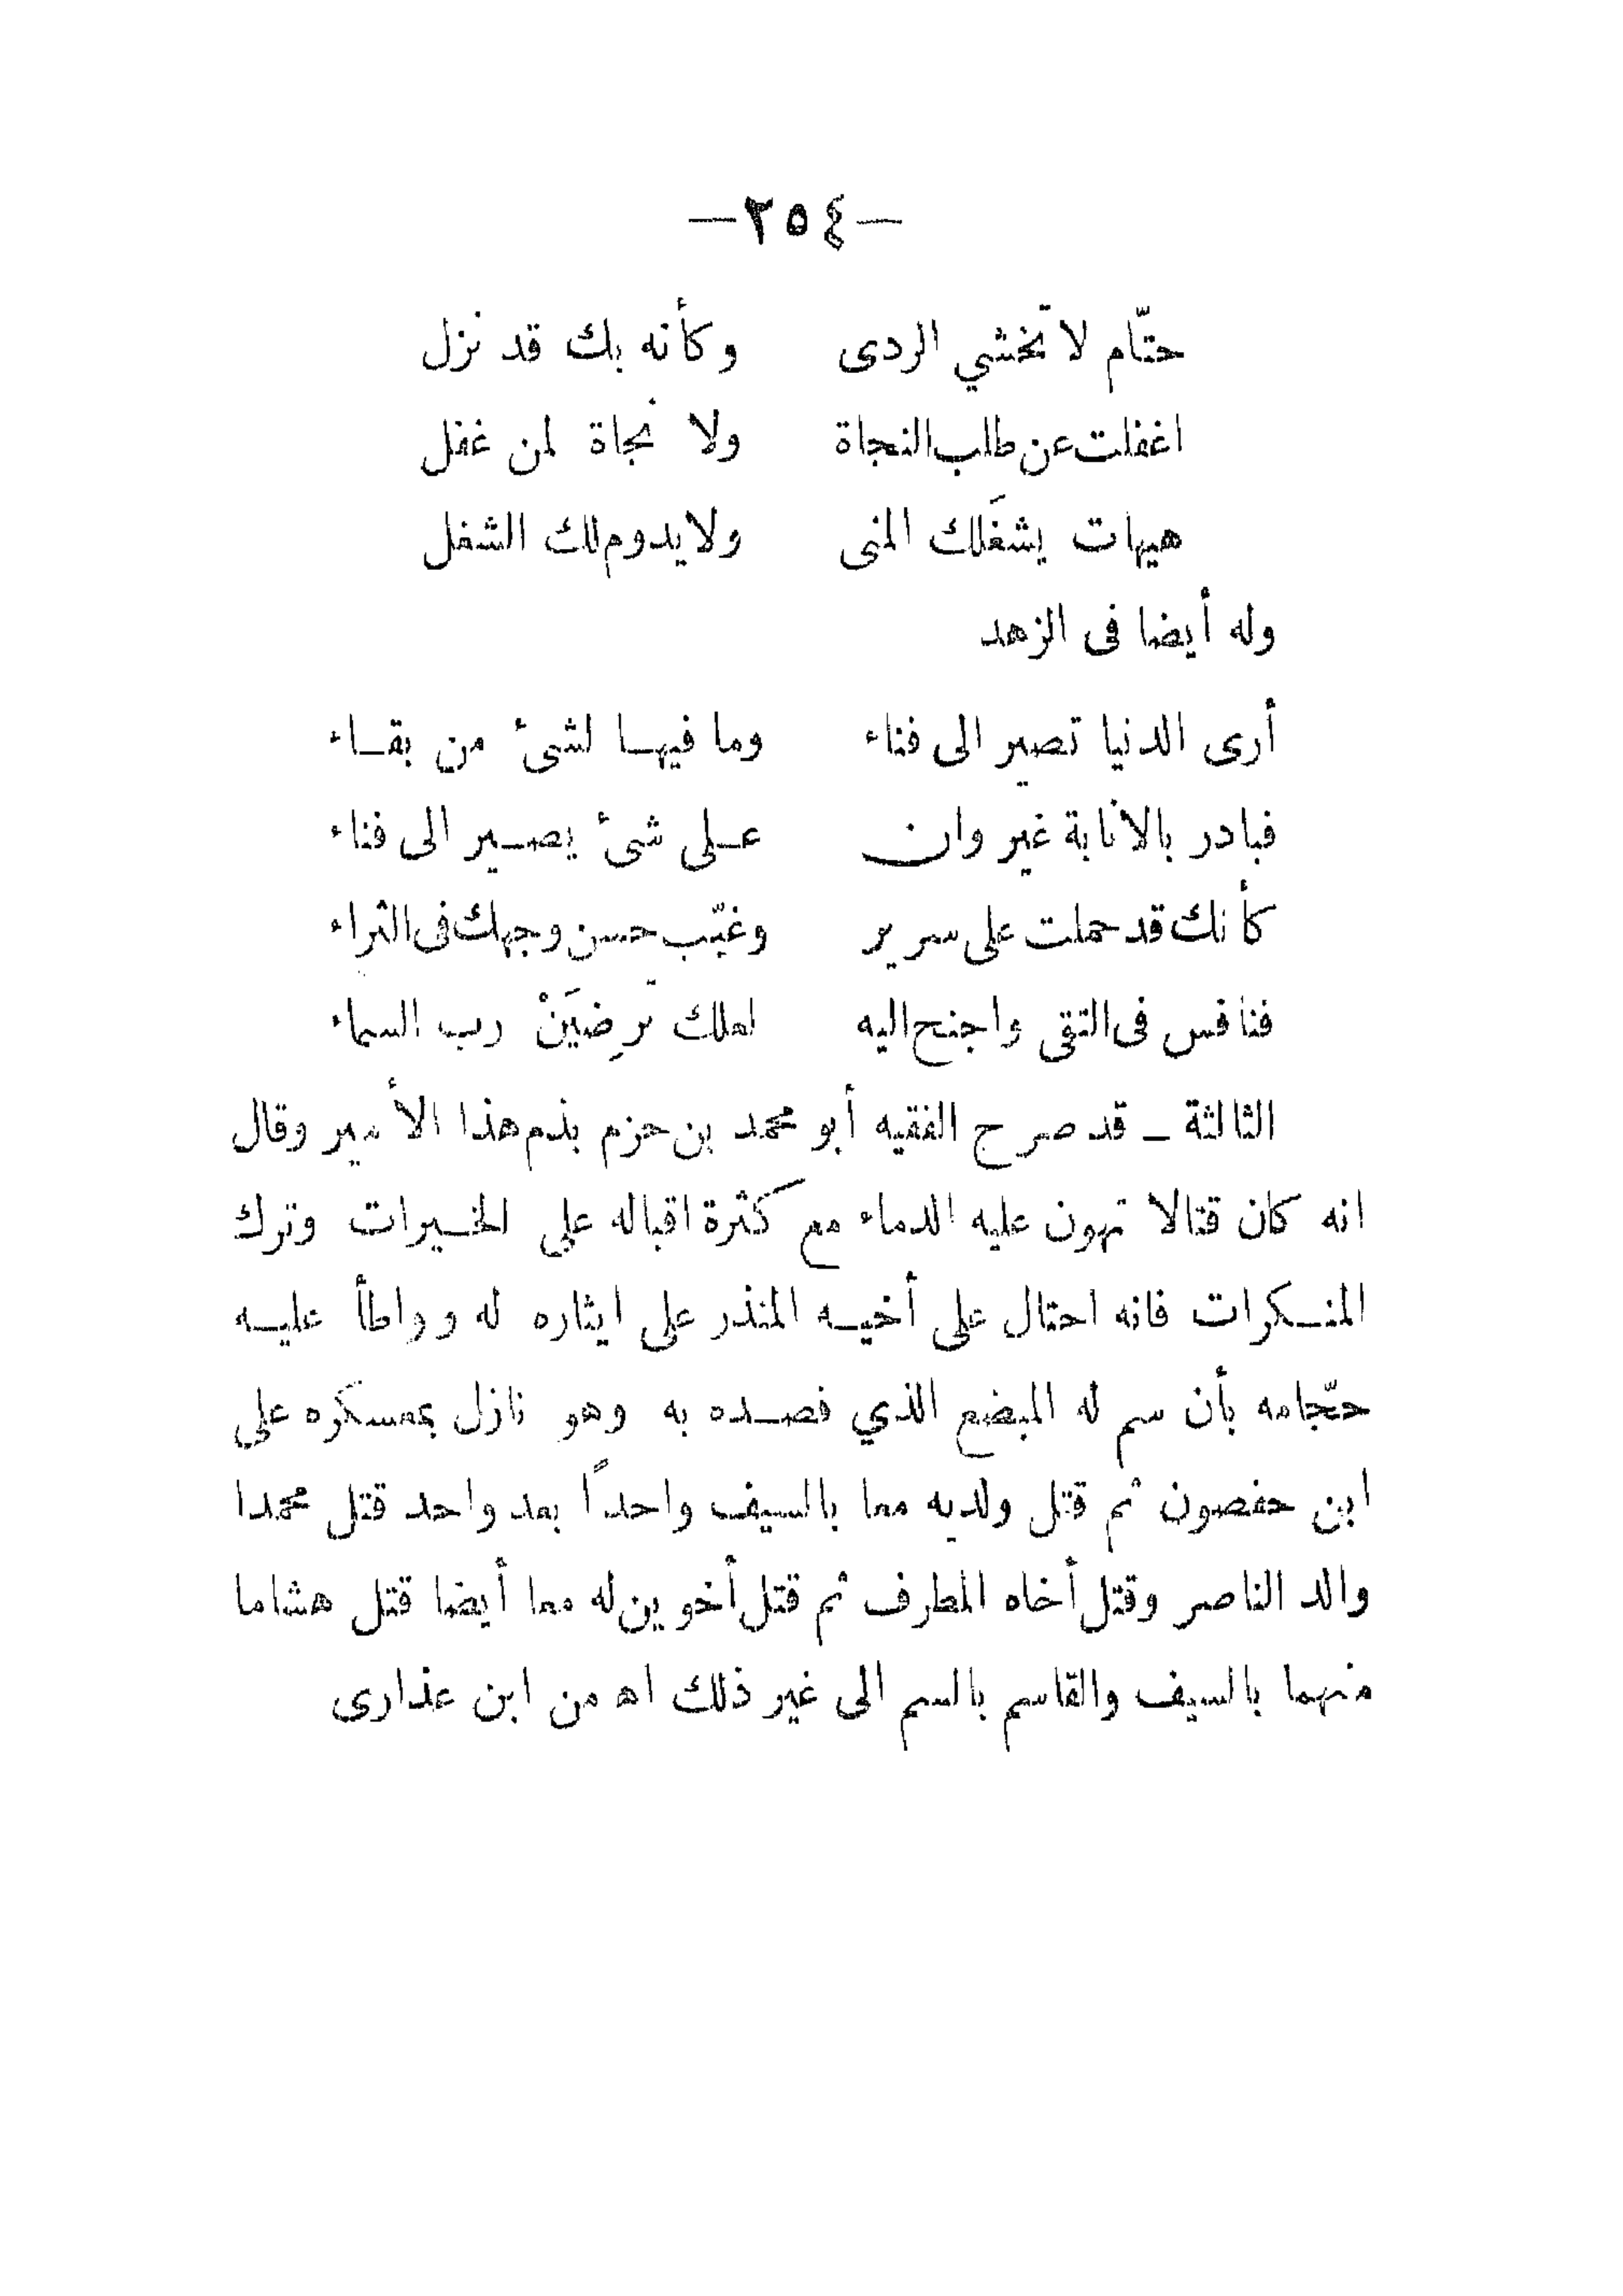 —٢٥٤—
حتّام لا تخشي الردى وكأنه بك قد نزل
اغفلت عن طلب النجاة ولا نجاة لمن غفل
هيهات يشغَلك المنى ولا يدوم لك الشغل
وله أيضا فى الزهد
أرى الدنيا تصير الى فناء وما فيها لشئ من بقاء
فبادر بالانابة غير وان على شئ يصير الى فناء
كأنك قد حملت على سرير وغيّب حسن وجهك فى الثراء
فنافس فى التقى واجنح اليه لعلك ترضِيَنْ رب السماء
الثالثة ــ قد صرح الفقيه أبو محمد بن حزم بذم هذا الأمير وقال
انه كان قتالا تهون عليه الدماء مع كثرة اقباله على الخيرات وترك
المنكرات فانه احتال على أخيه المنذر على ايثاره له وواطأ عليه
حجّامه بأن سم له المبضع الذي فصده به وهو نازل بمعسكره على
ابن حفصون ثم قتل ولديه معا بالسيف واحداً بعد واحد قتل محمدا
والد الناصر وقتل أخاه المطرف ثم قتل أخوين له معا أيضا قتل هشاما
منهما بالسيف والقاسم بالسم الى غير ذلك اه من ابن عذارى